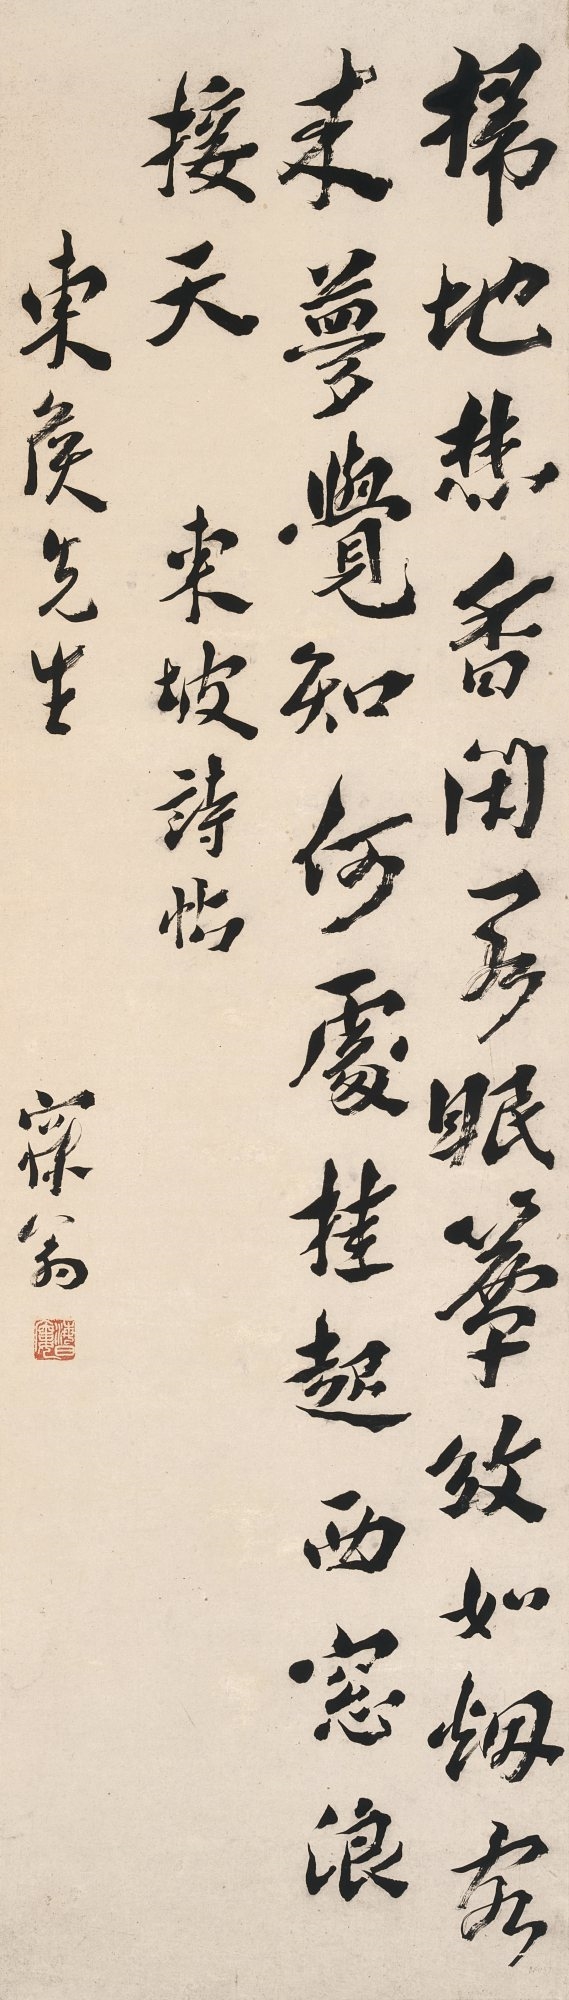 掃地焚香閉閣眠簟紋如烟客
來夢覺知何處挂起西窓浪
接天　東坡詩帖
東侯先生
寐翁
海日廔